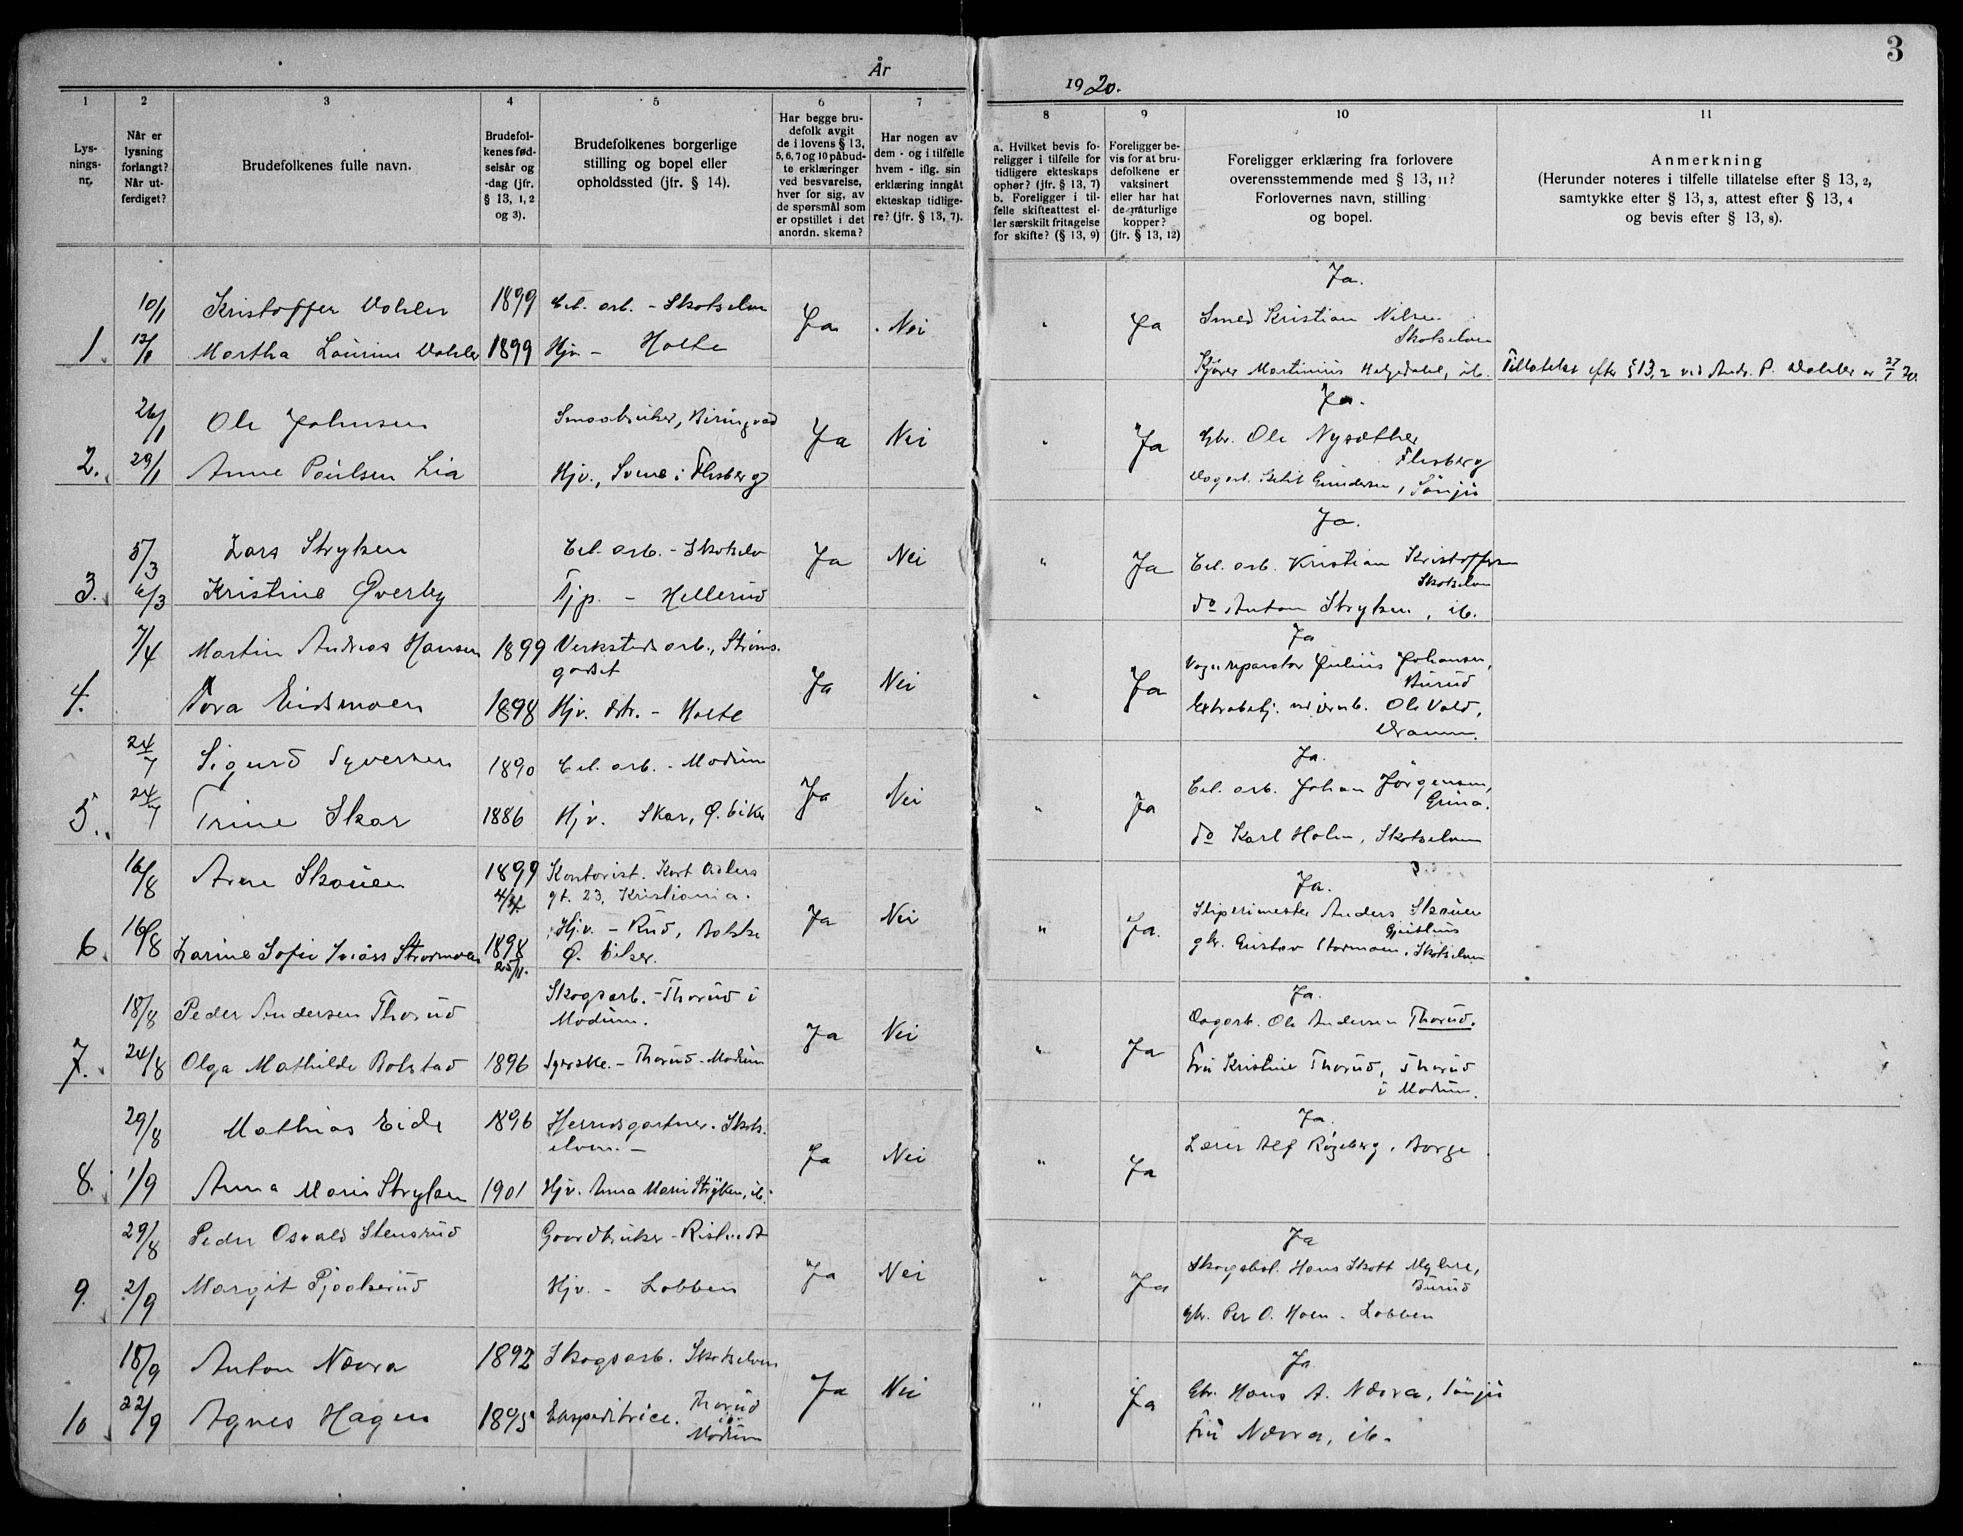 År 1920.
3
1 2 3 4 5 6 7 8 9 10 11
Lys-
nings-
nr.
Når er
lysning
forlangt?
Når ut-
ferdiget?
Brudefolkenes fulle navn.
Brudefol-
kenes fød-
selsår og
-dag (jfr.
§ 13, 1, 2
og 3).
Brudefolkenes borgerlige
stilling og bopel eller
opholdssted (jfr. § 14).
Har begge bru-
defolk avgit
de i lovens § 13,
5, 6, 7 og 10 påbud-
te erklæringer
ved besvarelse,
hver for sig, av
de spørsmål som
er opstillet i det
anordn. skema?
Har nogen av
dem - og i tilfelle
hvem - iflg. sin
erklæring inngåt
ekteskap tidlige-
re? (jfr. § 13, 7).
a. Hvilket bevis fo-
religger i tilfelle for
tidligere ekteskaps
ophør? (jfr. § 13, 7)
b. Foreligger i til-
felle skifteattest el-
ler særskilt fritagelse
for skifte? (§ 13, 9)
Foreligger be-
vis for at bru-
defolkene er
vaksinert
eller har hat
de naturlige
kopper?
(jfr. § 13, 12)
Foreligger erklæring fra forlovere
overensstemmende med § 13, 11?
Forlovernes navn, stilling
og bopel.
Anmerkning
(Herunder noteres i tilfelle tillatelse efter § 13, 2,
samtykke efter § 13, 3, attest efter § 13, 4
og bevis efter § 13, 8).
10/1 Kristoffer Dahler 1899 Cel. arb. - Skotselven Ja Nei " Ja Ja.
Smed Kristian Nilsen
Skotselven
1. 12/1 Martha Laurine Dahler 1899 Hjv. - Holte
Martinius Helgedalel, ib. Tillatelse efter § 13, 2 ved Andr. P. Dahler av 27/1 20.
26/1 Ole Johnsen Smaabruker, Ja Nei " Ja Ja.
Gbr. Ole Nysæther
Flesberg
2. 29/1 Anne Paulsen Lia Hjv., Svene i Flesberg
Dagarb. Gundersen,
5/3 Lars Stryken Cel. arb. - Skotselv Ja Nei " Ja Ja.
Cel. arb. Kristian Kristoffersen
Skotselven
3. 6/3 Kristine Øverby Tjp. - Hellerud
do Anton Stryken, ib.
7/4 Martin Andreas Hansen 1899 Verkstedsarb., Strøms-
godset Ja Nei " Ja Ja
Vognreparatør Julius Johansen,
Burud
4. Tora Eidsmoen 1898 Hjv. dtr. - Holte
Ole Vold,
Dramm.
24/7 Sigurd Syversen 1890 Cel. arb. - Modum Ja Nei " Ja Ja.
Cel. arb. Johan Jørgensen,
5. 24/7 Trine Skar 1886 Hjv. Skar, Ø. Eiker
do Karl Holm, Skotselven
16/8 Arne Skauen 1899 Kontorist. Kort Adlers
gt. 23, Kristiania. Ja Nei " Ja. Ja.
Anders Skauen
6. 16/8 Karine Sofie Storemoen 1898
25/11. Hjv. - Rud,
Ø. Eiker.
gbr. Gustav Stormoen, Skotselven
18/8 Peder Andersen Thorud Skogsarb. - Thorud i
Modum. Ja Nei " Ja Ja.
Dagarb. Ole Andersen Thorud.
7. 24/8 Olga Mathilde Bolstad 1896 Syerske. - Thorud - Modum
Fru Kristine Thorud, Thorud
i Modum.
29/8 Mathias Eide 1896 Herredsgartner. Skots-
elven. - Ja Nei " Ja Ja.
Lærer Alf Røgeberg, Borge
8. 1/9 Anna Marie Stryken 1901 Hjv. Anna Marie Stryken, ib.
29/8 Peder Osvald Stensrud Gaardbruker - Ja Nei " Ja Ja
Hans Skott Myhre,
Burud
9. 2/9 Margit Hjv. - Lobben
gbr. Per O. Hoen - Lobben
18/9 Anton Nævra 1892 Skogsarb. Skotselven Ja Nei " Ja Ja
Gbr. Hans A. Nævra,
10. 22/9 Agnes Hagen 1895 Ekspeditrice. Thorud
i
Modum
Fru Nævra, ib.